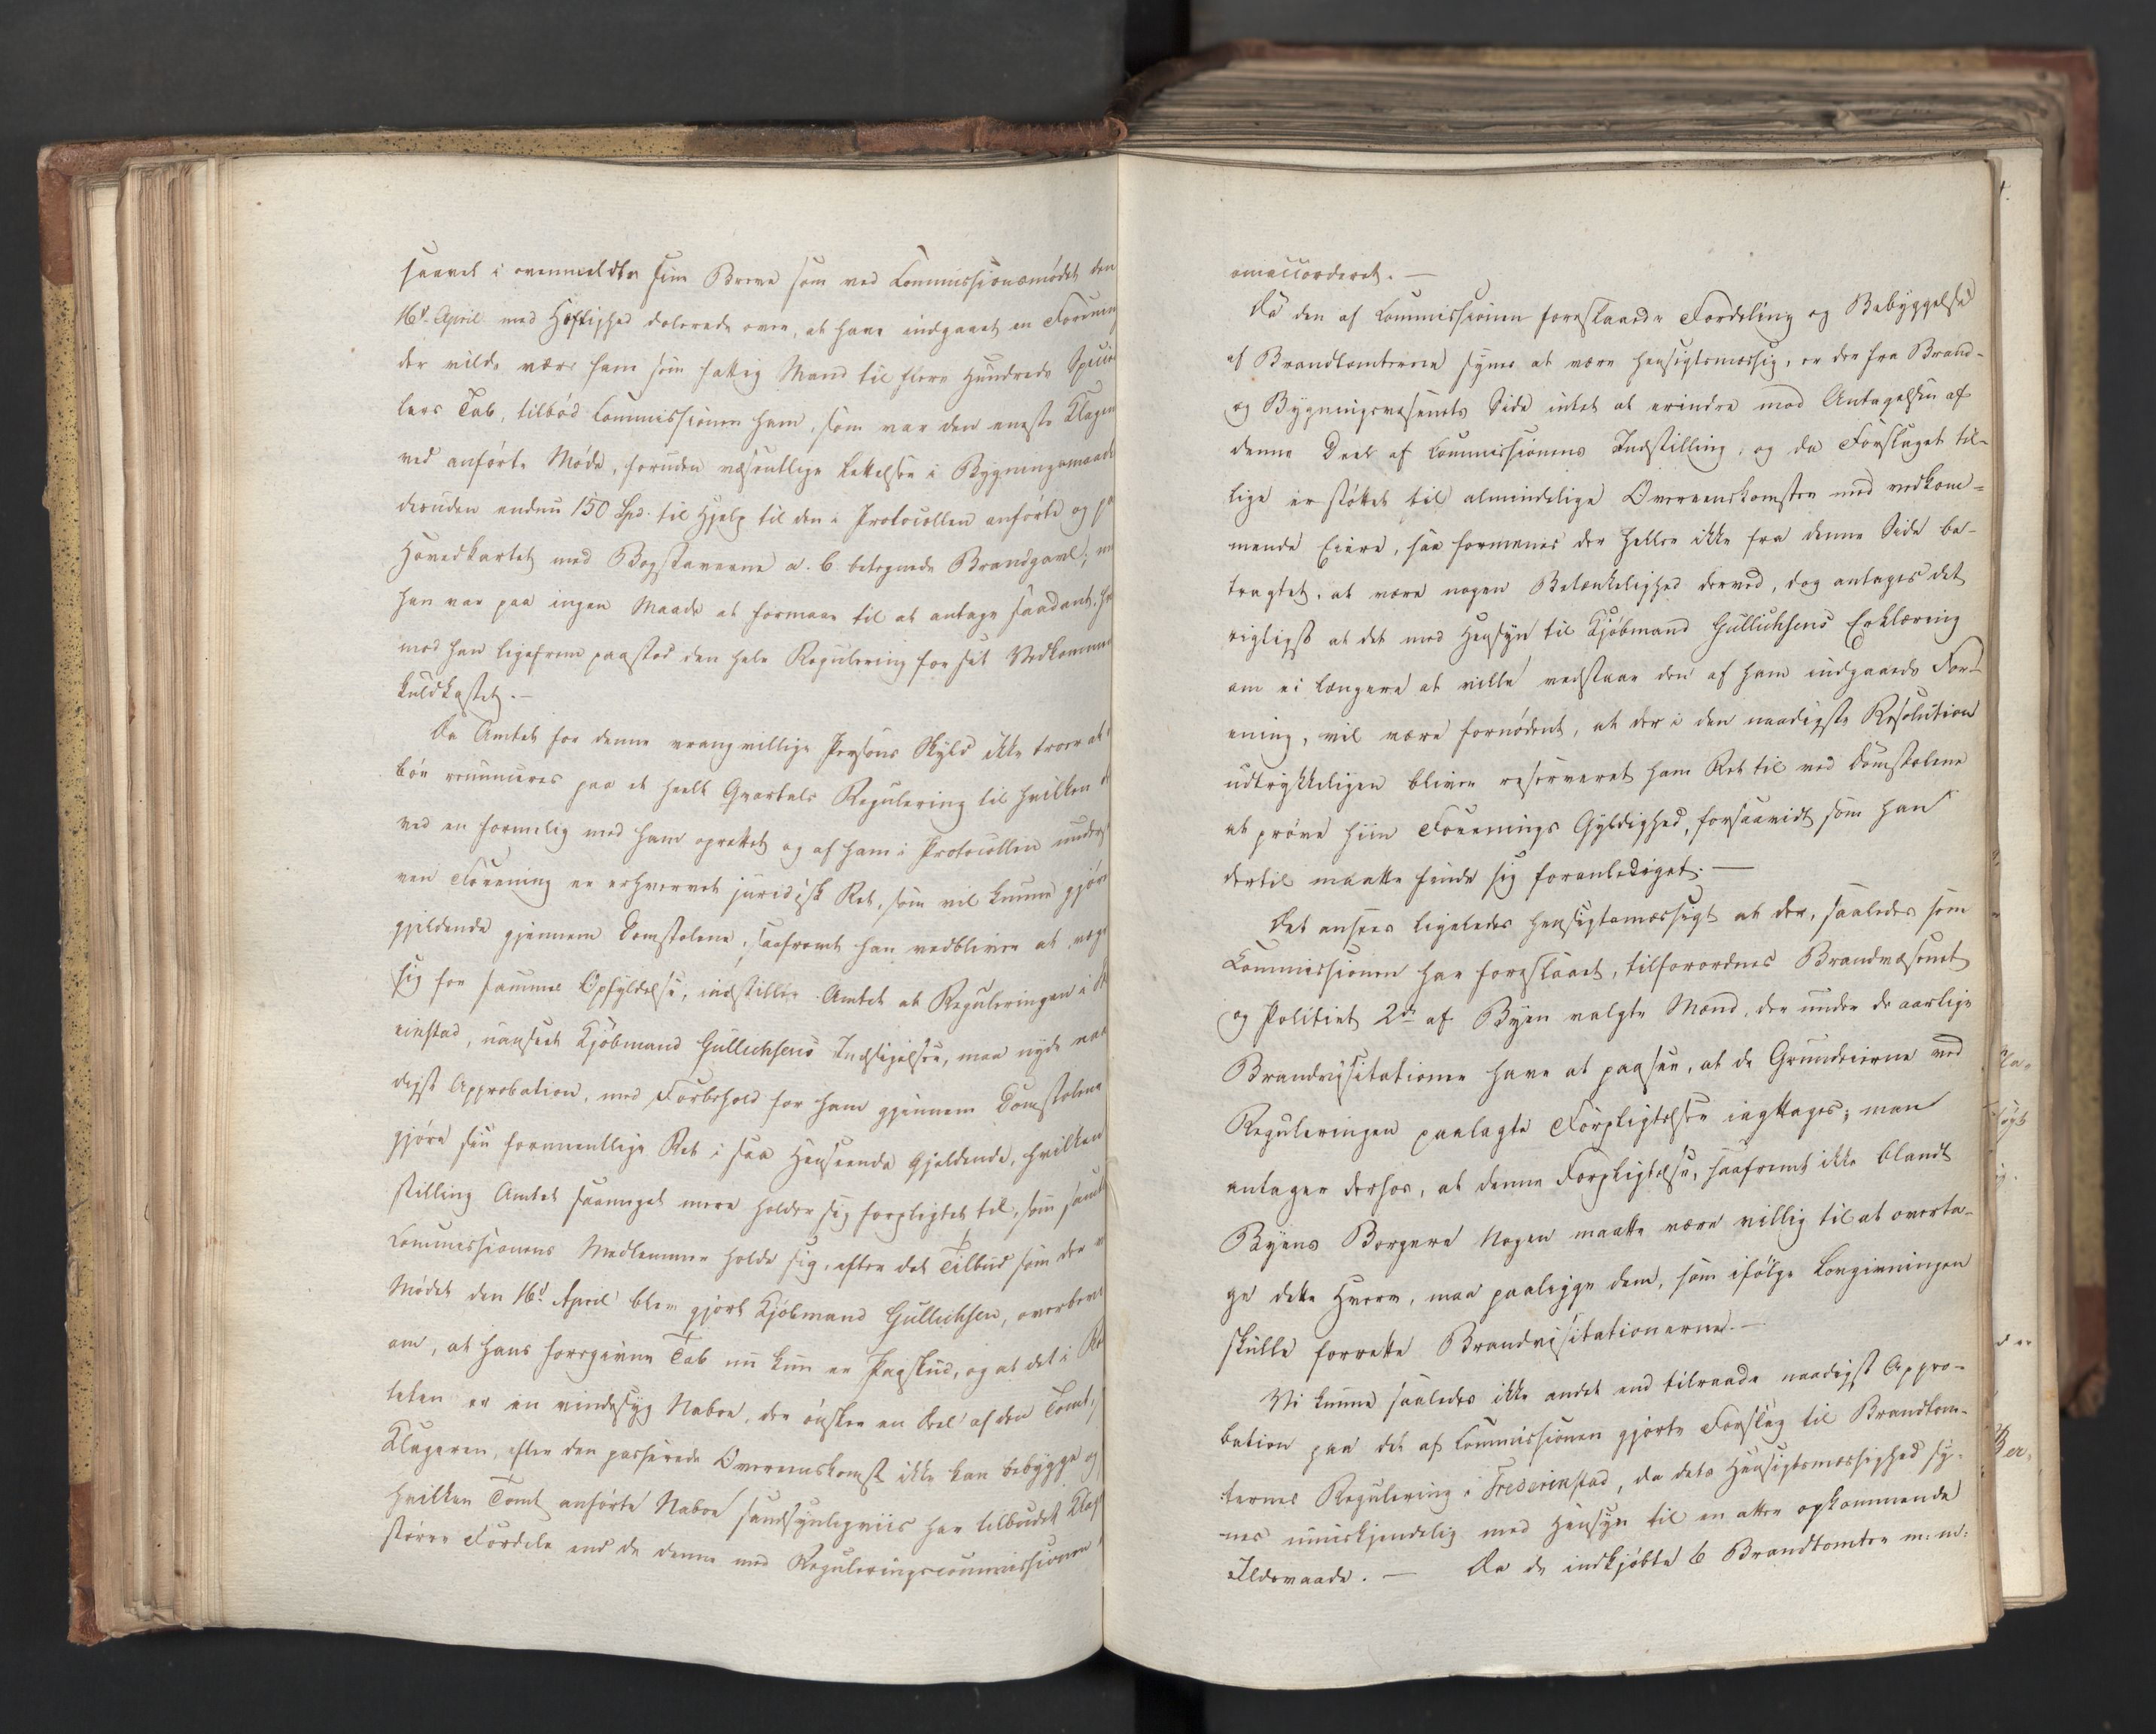 saavel i ovenmeldte sine Breve som ved Commissionsmødet den
16d. April med Høflighed dolerede over, at have indgaaet en Forening
der vilde være ham som fattig Mand til flere Hundrede Specie
lers Tab, tilbød Commissionen ham, som var den eneste Klagen
ved anførte Møde, foruden væsentlige Lettelser i Bygningsmaade
desuden endnu 150 Spd. til Hjelp til den i Protocollen anførte og pa
Hovedkartet med Bogstaverne a. b. betegnede Brandgavl; me
han var paa ingen Maade at formaae til at antage saadant, he
mod han ligefrem paastod den hele Regulering for sit Vedkommen
kuldkastet.-
Da Amtet for denne vrangvillige Persons Skyld ikke troer at
bør renunceres paa et heelt Qvartals Regulering til hvilken d
ved en formelig med ham oprettet og af ham i Protocollen underst
ven Forening er erhvervet juridisk Ret, som vil kunne gjøre
gjeldende gjennem Domstolene, saafremt han vedbliver at vegr
sig for sammes Opfyldelse, indstiller Amtet at Reguleringen i Fr
rikstad, uanseet Kjøbmand Gullichsens Indsigelser, maa nyde naa
digst Approbation, med Forbehold for ham gjennem Domstolene
gjøre sin formeentlige Ret i saa Henseende gjeldende, hvilken
stilling Amtet saameget mere holder sig forpligtet til, som samt
Commissionens Medlemmer holde sig, efter det Tilbud som der v
Mødet den 16d April blev gjort Kjøbmand Gullichsen, overbevi
om, at hans foregivne Tab nu kun er Paaskud, og at det i Re
teten er en vindesyg Naboe, der ønsker en Deel af den Tomt, s
Klageren, efter den passerede Overeenskomst ikke kan bebygge og
hvilken Tomt anførte Naboe sandsynligviis har tilbudet Klag
større Fordele end de denne med Reguleringscommissionen
omaccorderet. —
Da den af Commissionen foreslaaede Fordeling og Bebyggelse
af Brandtomterne synes at være hensigtsmæssig, er der fra Brand-
og Bygningsvæsenets Side intet at erindre mod Antagelsen af
denne Deel af Commissionens Indstilling, og da Forslaget til-
lige er støttet til almindelige Overeenskomster med vedkom-
mende Eiere, saa formenes der heller ikke fra denne Side be-
tragtet, at være nogen Betænkelighed derved, dog antages det
rigtigst at det med Hensyn til Kjøbmand Gullichsens Erklæring
om ei længere at ville vedstaae den af ham indgaaede For-
ening, vil være fornødent, at der i den naadigste Resolution
udtrykkeligen bliver reserveret ham Ret til ved Domstolene
at prøve hiin Forenings Gyldighed, forsaavidt som han
dertil maatte finde sig foranlediget. —
Det ansees ligeledes hensigtsmæssigt at der, saaledes som
Commissionen har foreslaaet, tilforordnes Brandvæsenet
og Politiet 2de af Byen valgte Mænd, der under de aarlige
Brandvisitationer have at paasee, at de Grundeierne ved
Reguleringen paalagte Forpligtelser iagttages; man
antager derhos, at denne Forpligtelse, saafremt ikke blandt
Byens Borgere Nogen maatte være villig til at overta-
ge dette Hverv, maa paaligge dem, som ifølge Lovgivningen
skulle forrette Brandvisitationerne.-
Vi kunne saaledes ikke andet end tilraade naadigst Appro-
bation paa det af Commissionen gjorte Forslag til Brandtom-
ternes Regulering i Frederikstad, da dets Hensigtsmæssighed sy-
nes umiskjendelig med Hensyn til en atter opkommende
Ildsvaade. — Da de indkjøbte 6 Brandtomter m: m: